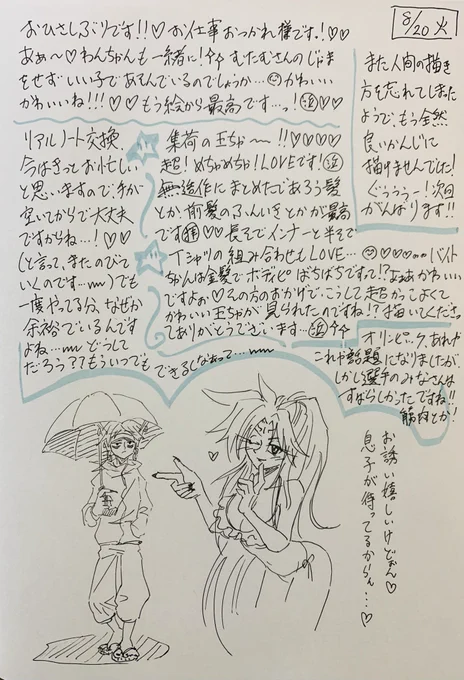 8/20 火
おひさしぶりです!!♡お仕事おつかれ様です!♡♡
あぁ〜♡わんちゃんも一緒に!むたむたさんのじゃま
をせずいい子であそんでいるのでしょうか…かわいい
かわいいね!!!♡♡もう絵から最高です…っ!泣♡♡
また人間の描き
方を忘れてしまた
ようで、もう全然
良いかんじに
描けませんでした!
ぐぅぅぅー!次回
がんばります!!
リアルノート交換、
今はきっとお忙しい
と思いますので、手が
空いてからで大丈夫
ですからね…!♡♡
(と言って、またのびて
いくのです…)でも
一度やってる分、なぜか
余裕でいるんです
よね…どうして
だろう??もういつでも
できるしなぁって…
集荷の王ちゃ〜!!♡♡♡♡
超!めちゃめちゃ!LOVEです!泣
無造作にまとめたであろう髪
とか、前髪のふんいきとかが最高
です♡♡長そでインナーと半そで
Tシャツの組み合わせもLOVE…♡♡♡バイト
ちゃんは金髪でボディピばちばちですって!?あぁかわいい
ですよぉ♡その方のおかげで、こうして超かっこよくて
かわいい王ちゃが見られたのですね!?描いてくださっ
てありがとうございます…泣
オリンピック、あれや
これや話題になりましたが、
しかし選手のみなさんは
すばらしかったですね!!
筋肉とか!
お誘い嬉しいけどぉん♡
息子が待ってるからぁ…♡